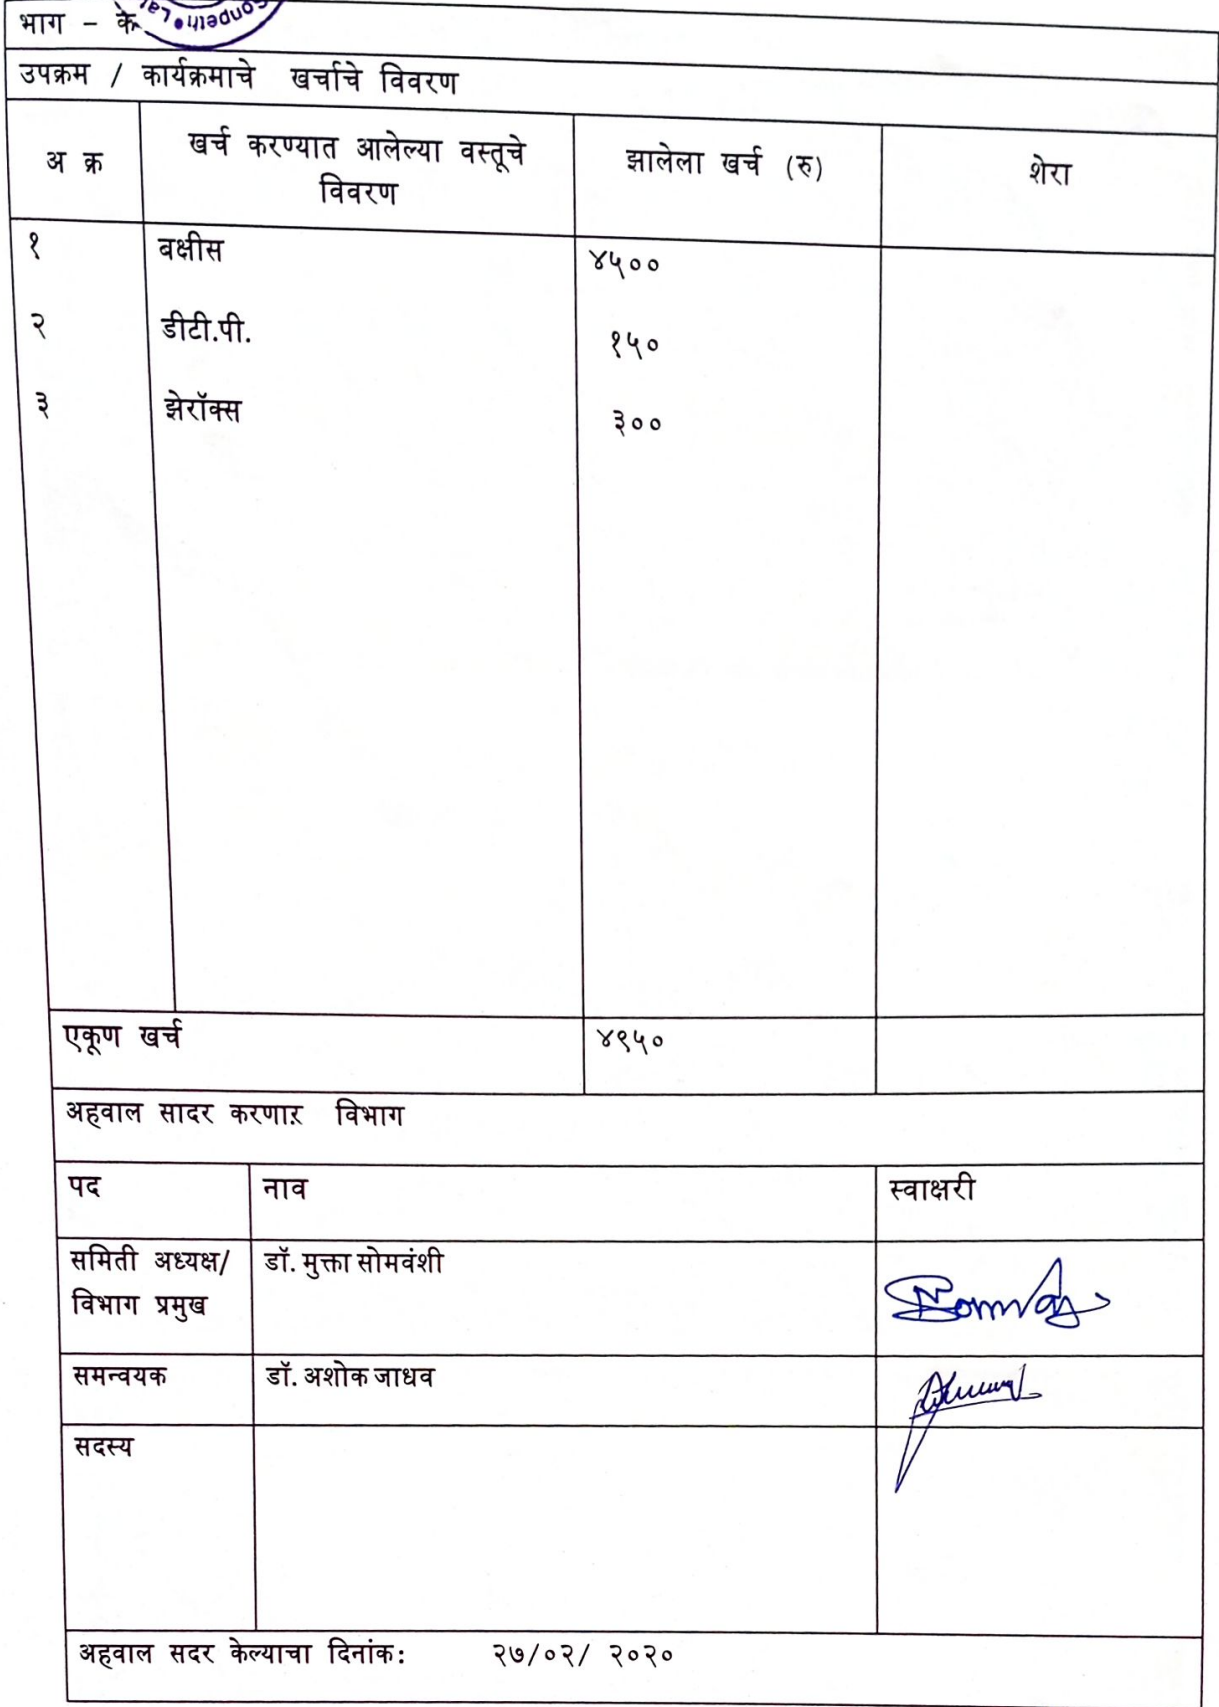 भाग - के
उपक्रम / कार्यक्रमाचे खर्चाचे विवरण
अ क्र
खर्च करण्यात आलेल्या वस्तूचे
विवरण
झालेला खर्च (रु)
शेरा
१ बक्षीस ४५००
२ डीटी.पी. १५०
३ झेरॉक्स ३००
एकूण खर्च ४९५०
अहवाल सादर करणाऱ विभाग
पद नाव स्वाक्षरी
समिती अध्यक्ष/ डॉ. मुक्ता सोमवंशी
विभाग प्रमुख
समन्वयक डॉ. अशोक जाधव
सदस्य
अहवाल सदर केल्याचा दिनांक: २७/०२/ २०२०